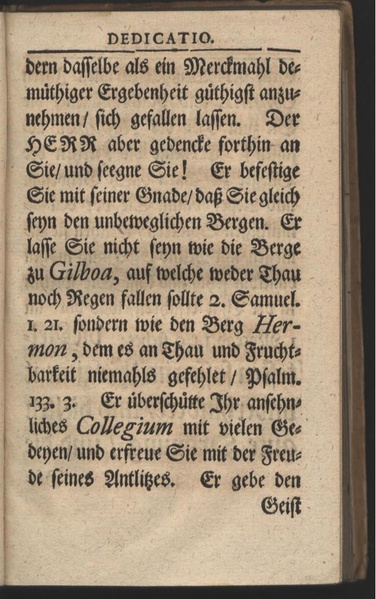 DEDICATIO.
dern dasselbe als ein Merckmahl de-
müthiger Ergebenheit güthigst anzu-
nehmen/ sich gefallen lassen. Der
HERR aber gedencke forthin an
Sie/ und seegne Sie! Er befestige
Sie mit seiner Gnade/ daß Sie gleich
seyn den unbeweglichen Bergen. Er
lasse Sie nicht seyn wie die Berge
zu Gilboa, auf welche weder Thau
noch Regen fallen sollte 2. Samuel.
1. 21. sondern wie den Berg Her-
mon, dem es an Thau und Frucht-
barkeit niemahls gefehlet/ Psalm.
133. 3. Er überschütte Ihr ansehn-
liches Collegium mit vielen Ge-
deyen/ und erfreue Sie mit der Freu-
de seines Antlitzes. Er gebe den
Geist